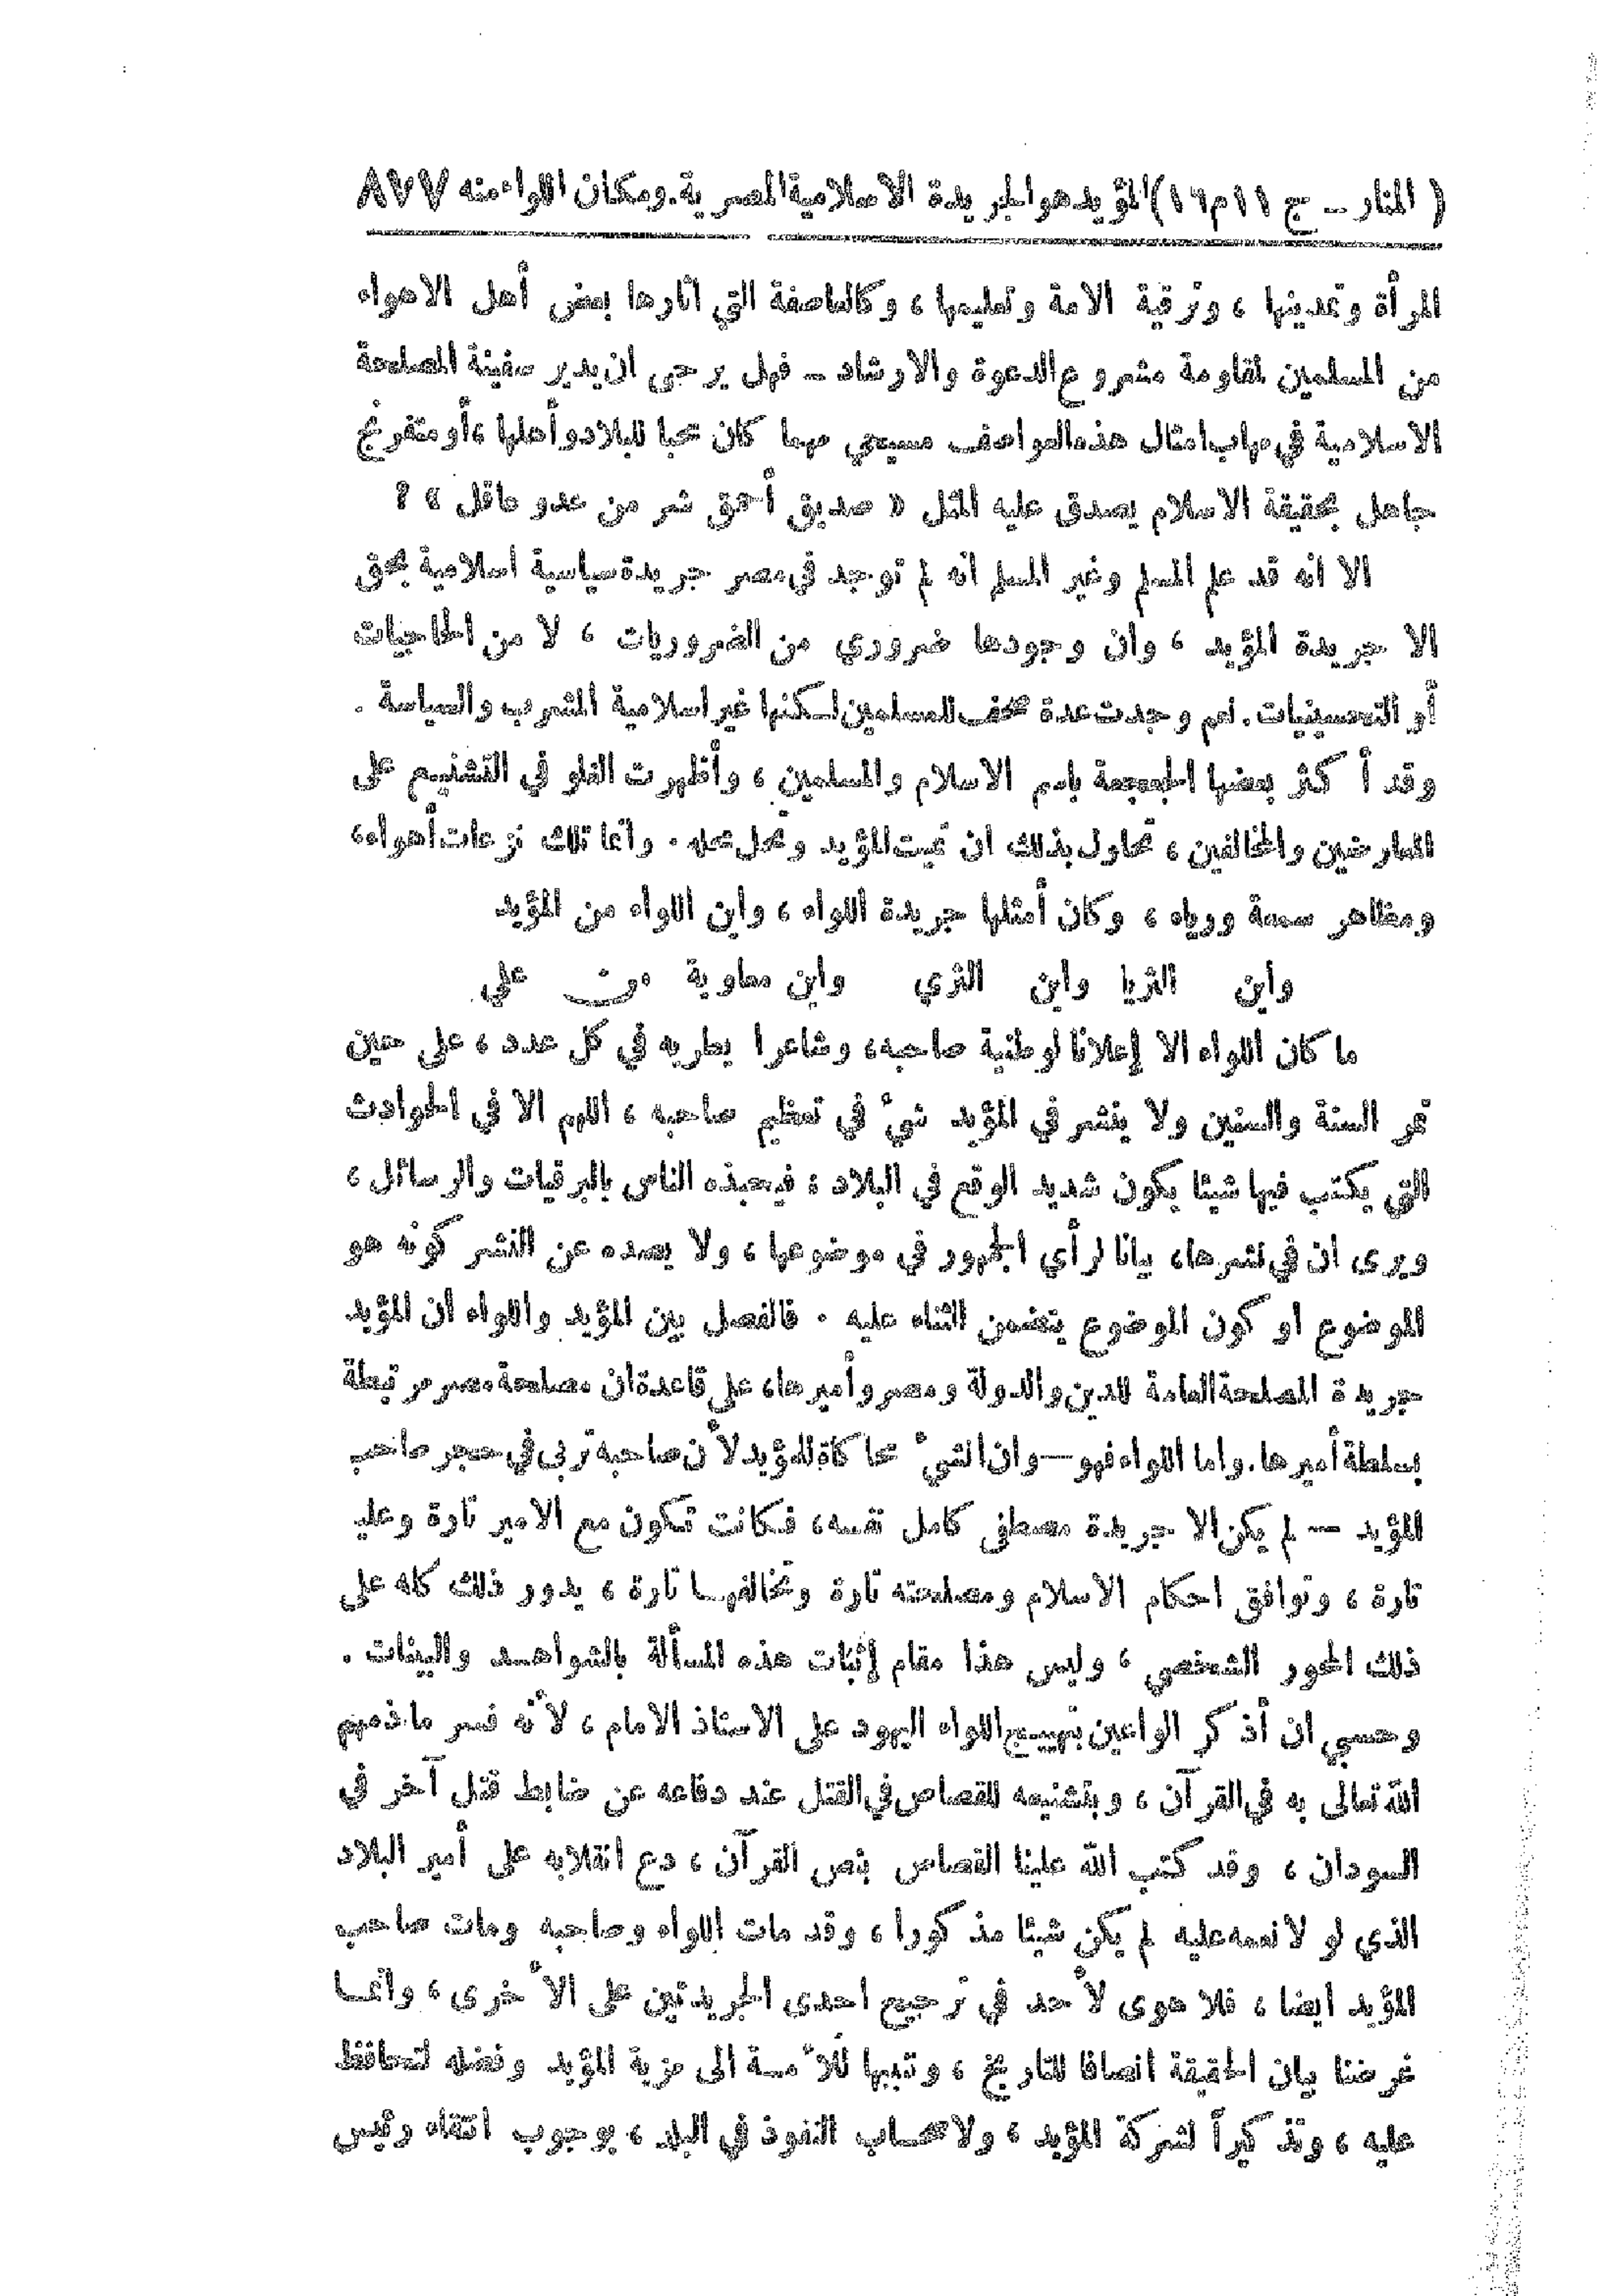 ( المنار ــ ج ١١ م ١٦ ) المؤيد هو الجريدة الاسلامية المصرية. ومكان اللواء منه ٨٧٧
المرأة وتمدينها ، وترقية الامة وتعليمها ، وكالعاصفة التي اثارها بعض أهل الاهواء
من المسلمين لمقاومة مشروع الدعوة والارشاد ــ فهل يرجى ان يدير سفينة المصلحة
الاسلامية في مهاب امثال هذه العواصف مسيحي مهما كان محبا للبلاد وأهلها ، أو متفرنج
جاهل بحقيقة الاسلام يصدق عليه المثل « صديق أحمق شر من عدو عاقل » ؟
الا انه قد علم المسلم وغير المسلم أنه لم توجد في مصر جريدة سياسية اسلامية بحق
الا جريدة المؤيد ، وان وجودها ضروري من الضروريات ، لا من الحاجيات
أو التحسينيات. نعم وجدت عدة صحف للمسلمين لكنها غير اسلامية المشرب والسياسة .
وقد أكثر بعضها الجعجعة باسم الاسلام والمسلمين ، وأظهرت الغلو في التشنيع على
المعارضين والمخالفين ، تحاول بذلك ان تميت المؤيد وتحل محله . وانما تلك نزعات أهواء،
ومظاهر سمعة ورياء ، وكان أمثلها جريدة اللواء ، واين اللواء من المؤيد
وأين الثريا واين الثري واين معاوية من علي
ما كان اللواء الا إعلانا لوطنية صاحبه، وشاعرا يطريه في كل عدد ، على حين
تمر السنة والسنين ولا ينشر في المؤيد شيء في تعظيم صاحبه ، اللهم الا في الحوادث
التي يكتب فيها شيئا يكون شديد الوقع في البلاد : فيحبذه الناس بالبرقيات والرسائل ،
ويرى ان في نشرها، بيانا لرأي الجمهور في موضوعها ، ولا يصده عن النشر كونه هو
الموضوع او كون الموضوع يتضمن الثناء عليه . فالفصل بين المؤيد واللواء ان المؤيد
جريدة المصلحة العامة للدين والدولة ومصر وأميرها، على قاعدة ان مصلحة مصر مرتبطة
بسلطة أميرها. واما اللواء فهو — وان انشيء محاكاة للمؤيد لأن صاحبه تربى في حجر صاحب
المؤيد — لم يكن الا جريدة مصطفى كامل نفسه، فكانت تكون مع الامير تارة وعليه
تارة ، وتوافق احكام الاسلام ومصلحته تارة وتخالفهما تارة ، يدور ذلك كله على
ذلك المحور الشخصي ، وليس هذا مقام إثبات هذه المسألة بالشواهد والبينات .
وحسبي ان أذكر الواعين بتهييج اللواء اليهود على الاستاذ الامام ، لأنه فسر ما ذمهم
الله تعالى به في القرآن ، وبتشنيعه للقصاص في القتل عند دفاعه عن ضابط قتل آخر في
السودان ، وقد كتب الله علينا القصاص بنص القرآن ، دع انقلابه على أمير البلاد
الذي لو لا نعمه عليه لم يكن شيئا مذكورا ، وقد مات اللواء وصاحبه ومات صاحب
المؤيد ايضا ، فلا هوى لأحد في ترجيح احدى الجريدتين على الأخرى ، وانما
غرضنا بيان الحقيقة انصافا للتاريخ ، وتنبيها للأمة الى مزية المؤيد وفضله لتحافظ
عليه ، وتذكيراً لشركة المؤيد ، ولاصحاب النفوذ في البلد ، بوجوب انتقاء رئيس